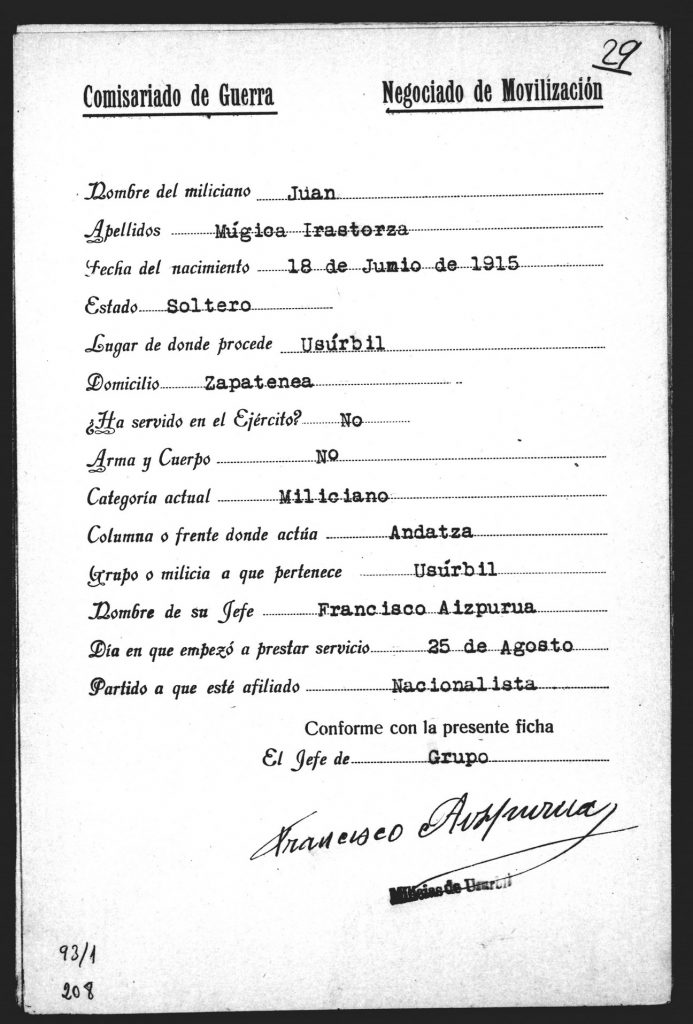 29
Comisariado de Guerra Negociado de Movilización
Nombre del miliciano Juan
Apellidos Múgica Irastorza
Fecha del nacimiento 18 de Junio de 1915
Estado Soltero
Lugar de donde procede Usúrbil
Domicilio Zapatenea
¿Ha servido en el Ejército? No
Arma y Cuerpo No
Categoría actual Miliciano
Columna o frente donde actúa Andatza
Grupo o milicia a que pertenece Usúrbil
Nombre de su Jefe Francisco Aizpurua
Día en que empezó a prestar servicio 25 de Agosto
Partido a que esté afiliado Nacionalista
Conforme con la presente ficha
El Jefe de Grupo
Francisco Aizpurua
Milicias de Usurbil
93/1
208